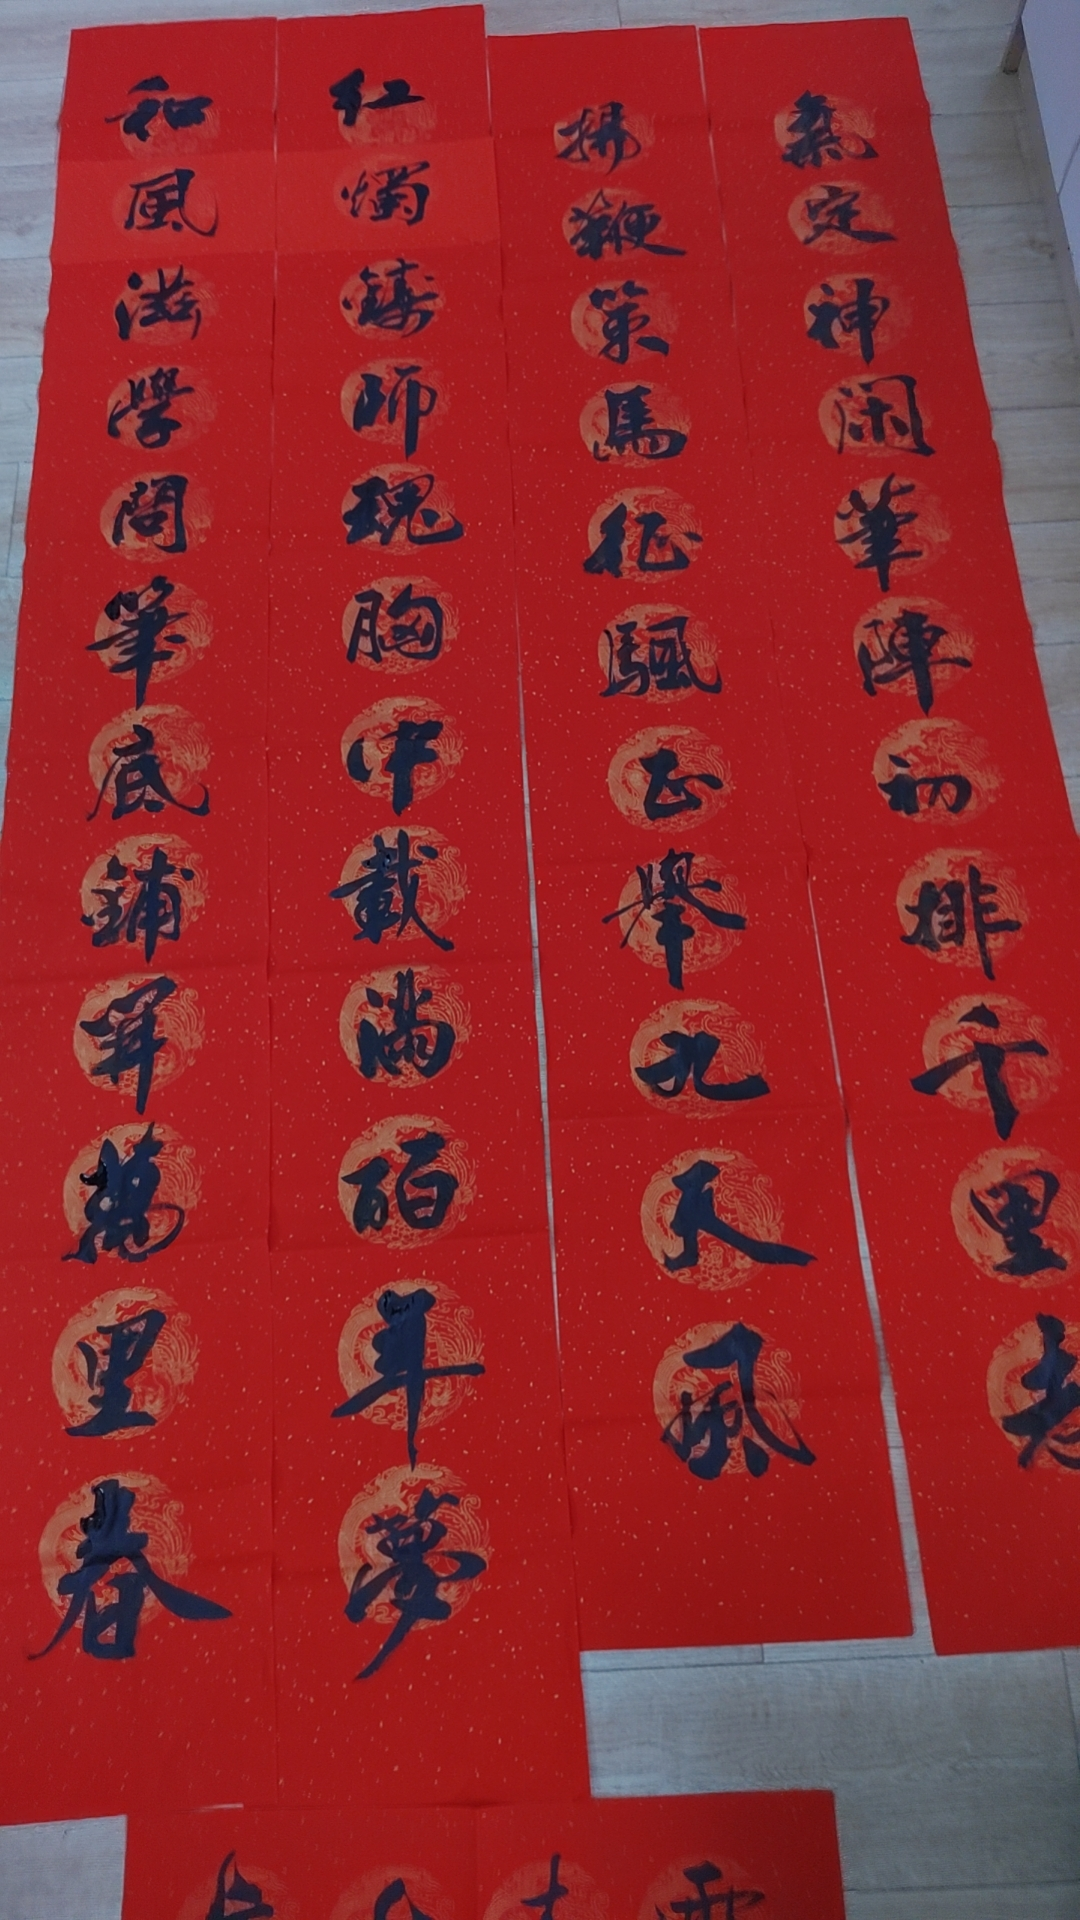 氣定神闲筆陣初排千里
揚鞭策馬征颿正舉九天風
紅燭鑄師魂胸中載滿百年夢
和風滋學問筆底鋪開萬里春